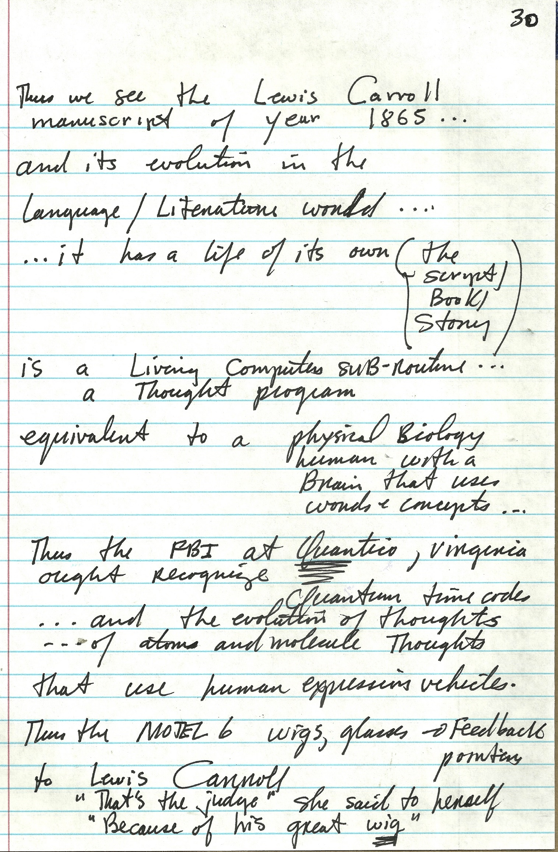 30
Thus we see the Lewis Carroll
manuscript of year 1865...
and its evolution in the
Language / Literature world ....
...it has a life of its own (the
script/
Book/
Story)
is a Living Computer sub-routine...
a Thought program
equivalent to a physical Biology
human with a
Brain that uses
words & concepts ...
Thus the FBI at Quantico, Virginia
ought recognize
Quantum time codes
... and the evolution of thoughts
---of atoms and molecule Thoughts
that use human expression vehicles.
Thus the MOTEL 6 wigs, glasses → Feedback
pointers
to Lewis Carroll
"That's the judge" she said to herself
"Because of his great wig"